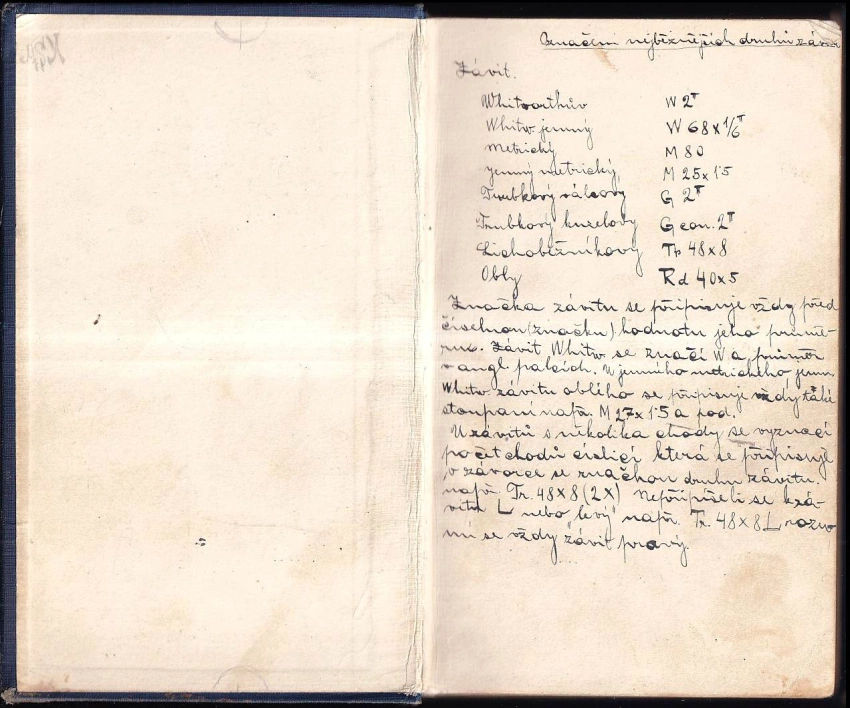 Označení nejběžnějších druhů
Závit.
Whitworthův W 2"
Whitw. jemný W 68 x 1/6"
Metrický M 80
Jemný metrický M 25 x 1·5
Trubkový válcový G 2"
Trubkový kuželový G con. 2"
Lichoběžníkový Tr 48x8
Oblý Rd 40x5
Značka závitu se připisuje vždy před
číselnou (značku) hodnotu jeho průmě-
ru. Závit Whitw. se značí W a průměr
v angl. palcích. U jemného metrického jemn.
Whitw. závitu oblého se připisuje vždy také
stoupaní napr. M 27x1·5 a pod.
U závitů s několika chody se vyznací
počet chodů číslicí která se připisuje
v závorce se značkou druhu závitu.
napr. Tr. 48x8 (2x) Nepřipíšeli se k zá-
vitu L nebo "levý" napr. Tr. 48x8 L rozu-
mí se vždy "závit pravý.